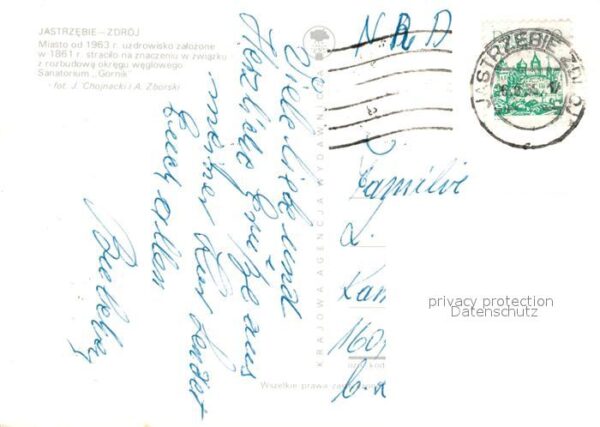 JASTRZĘBIE – ZDRÓJ
Miasto od 1963 r. uzdrowisko założone
w 1861 r. straciło na znaczeniu w związku
z rozbudową okręgu węglowego
Sanatorium „Górnik"
fot. J. Chojnacki i A. Zborski
Viele liebe und
Herzliche Grüße aus
meiner Kur sendet
Euch allen
KRAJOWA AGENCJA WYDAWNICZA
NRD
JASTRZĘBIE ZDRÓJ
Familie
L.
Kam
160
Wszelkie prawa zas
privacy protection
Datenschutz